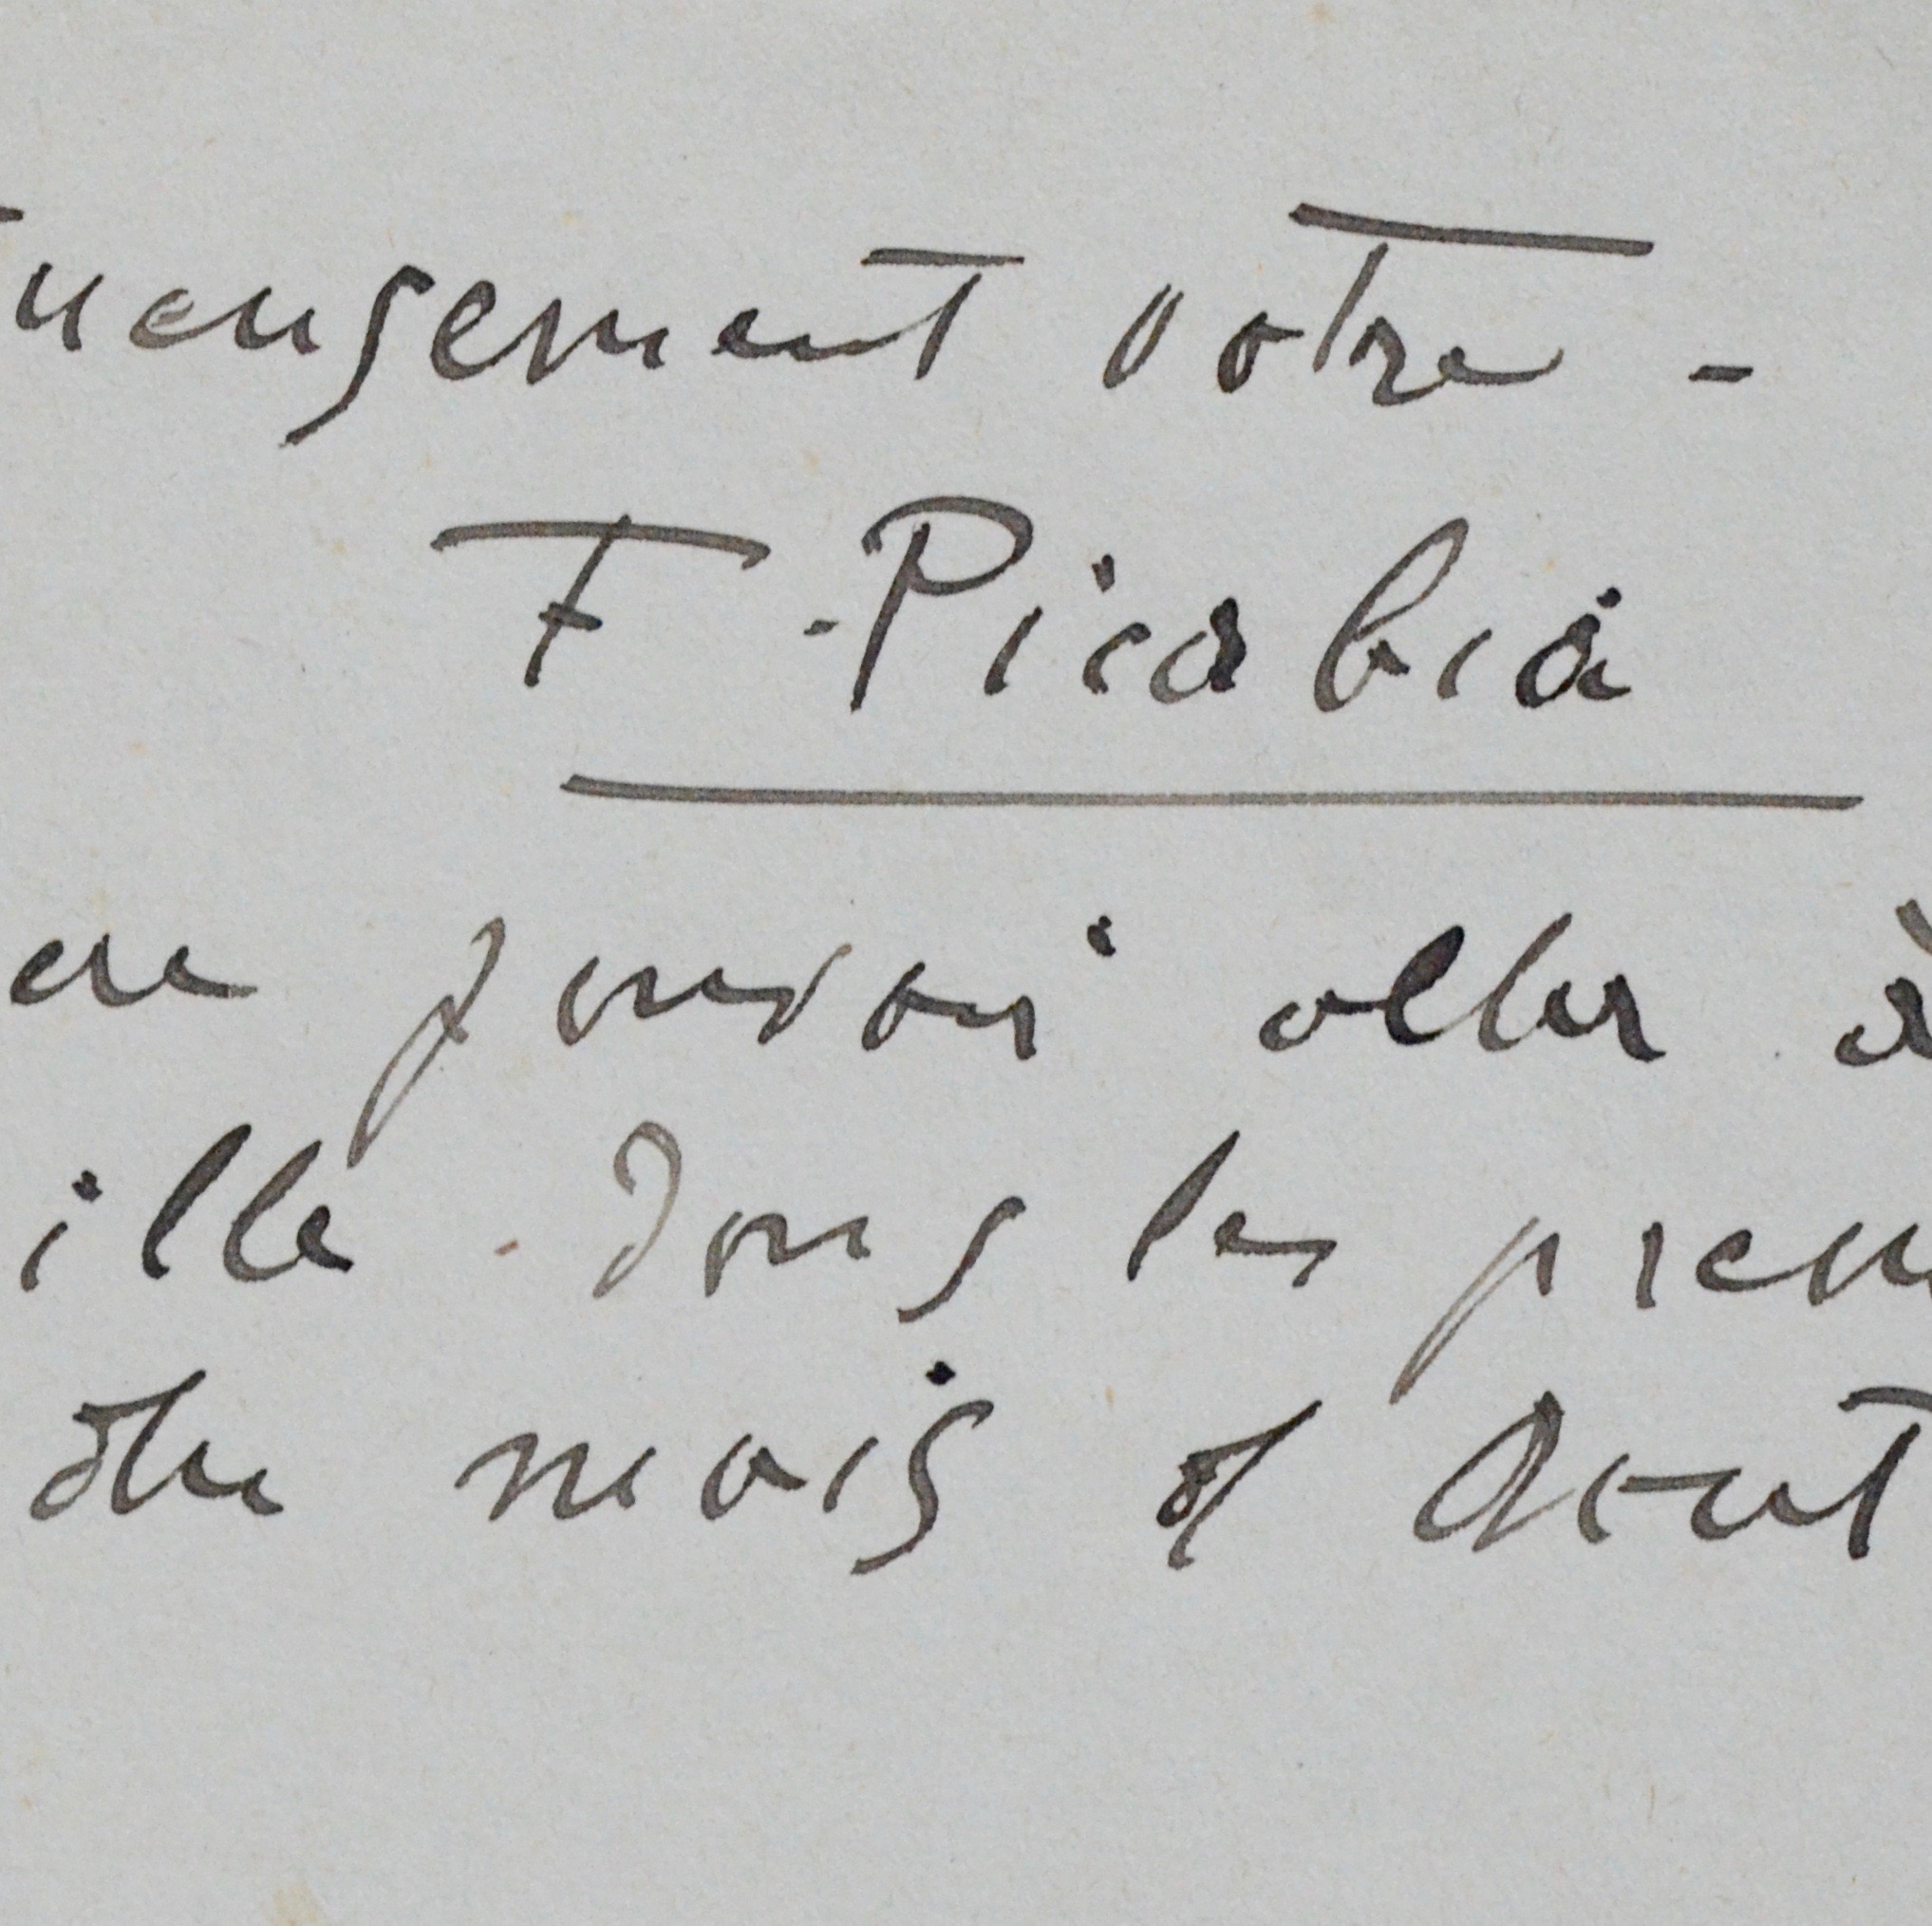 votre -
F. Picabia
pouvoir aller à
ille dans les prem
du mois d'Aout